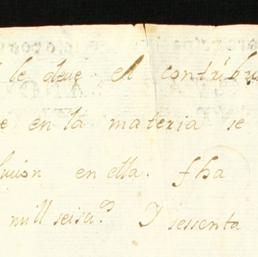 le deue el contribu
e en la materia se
lución en ella. fha
mill seiss.º Y sessenta